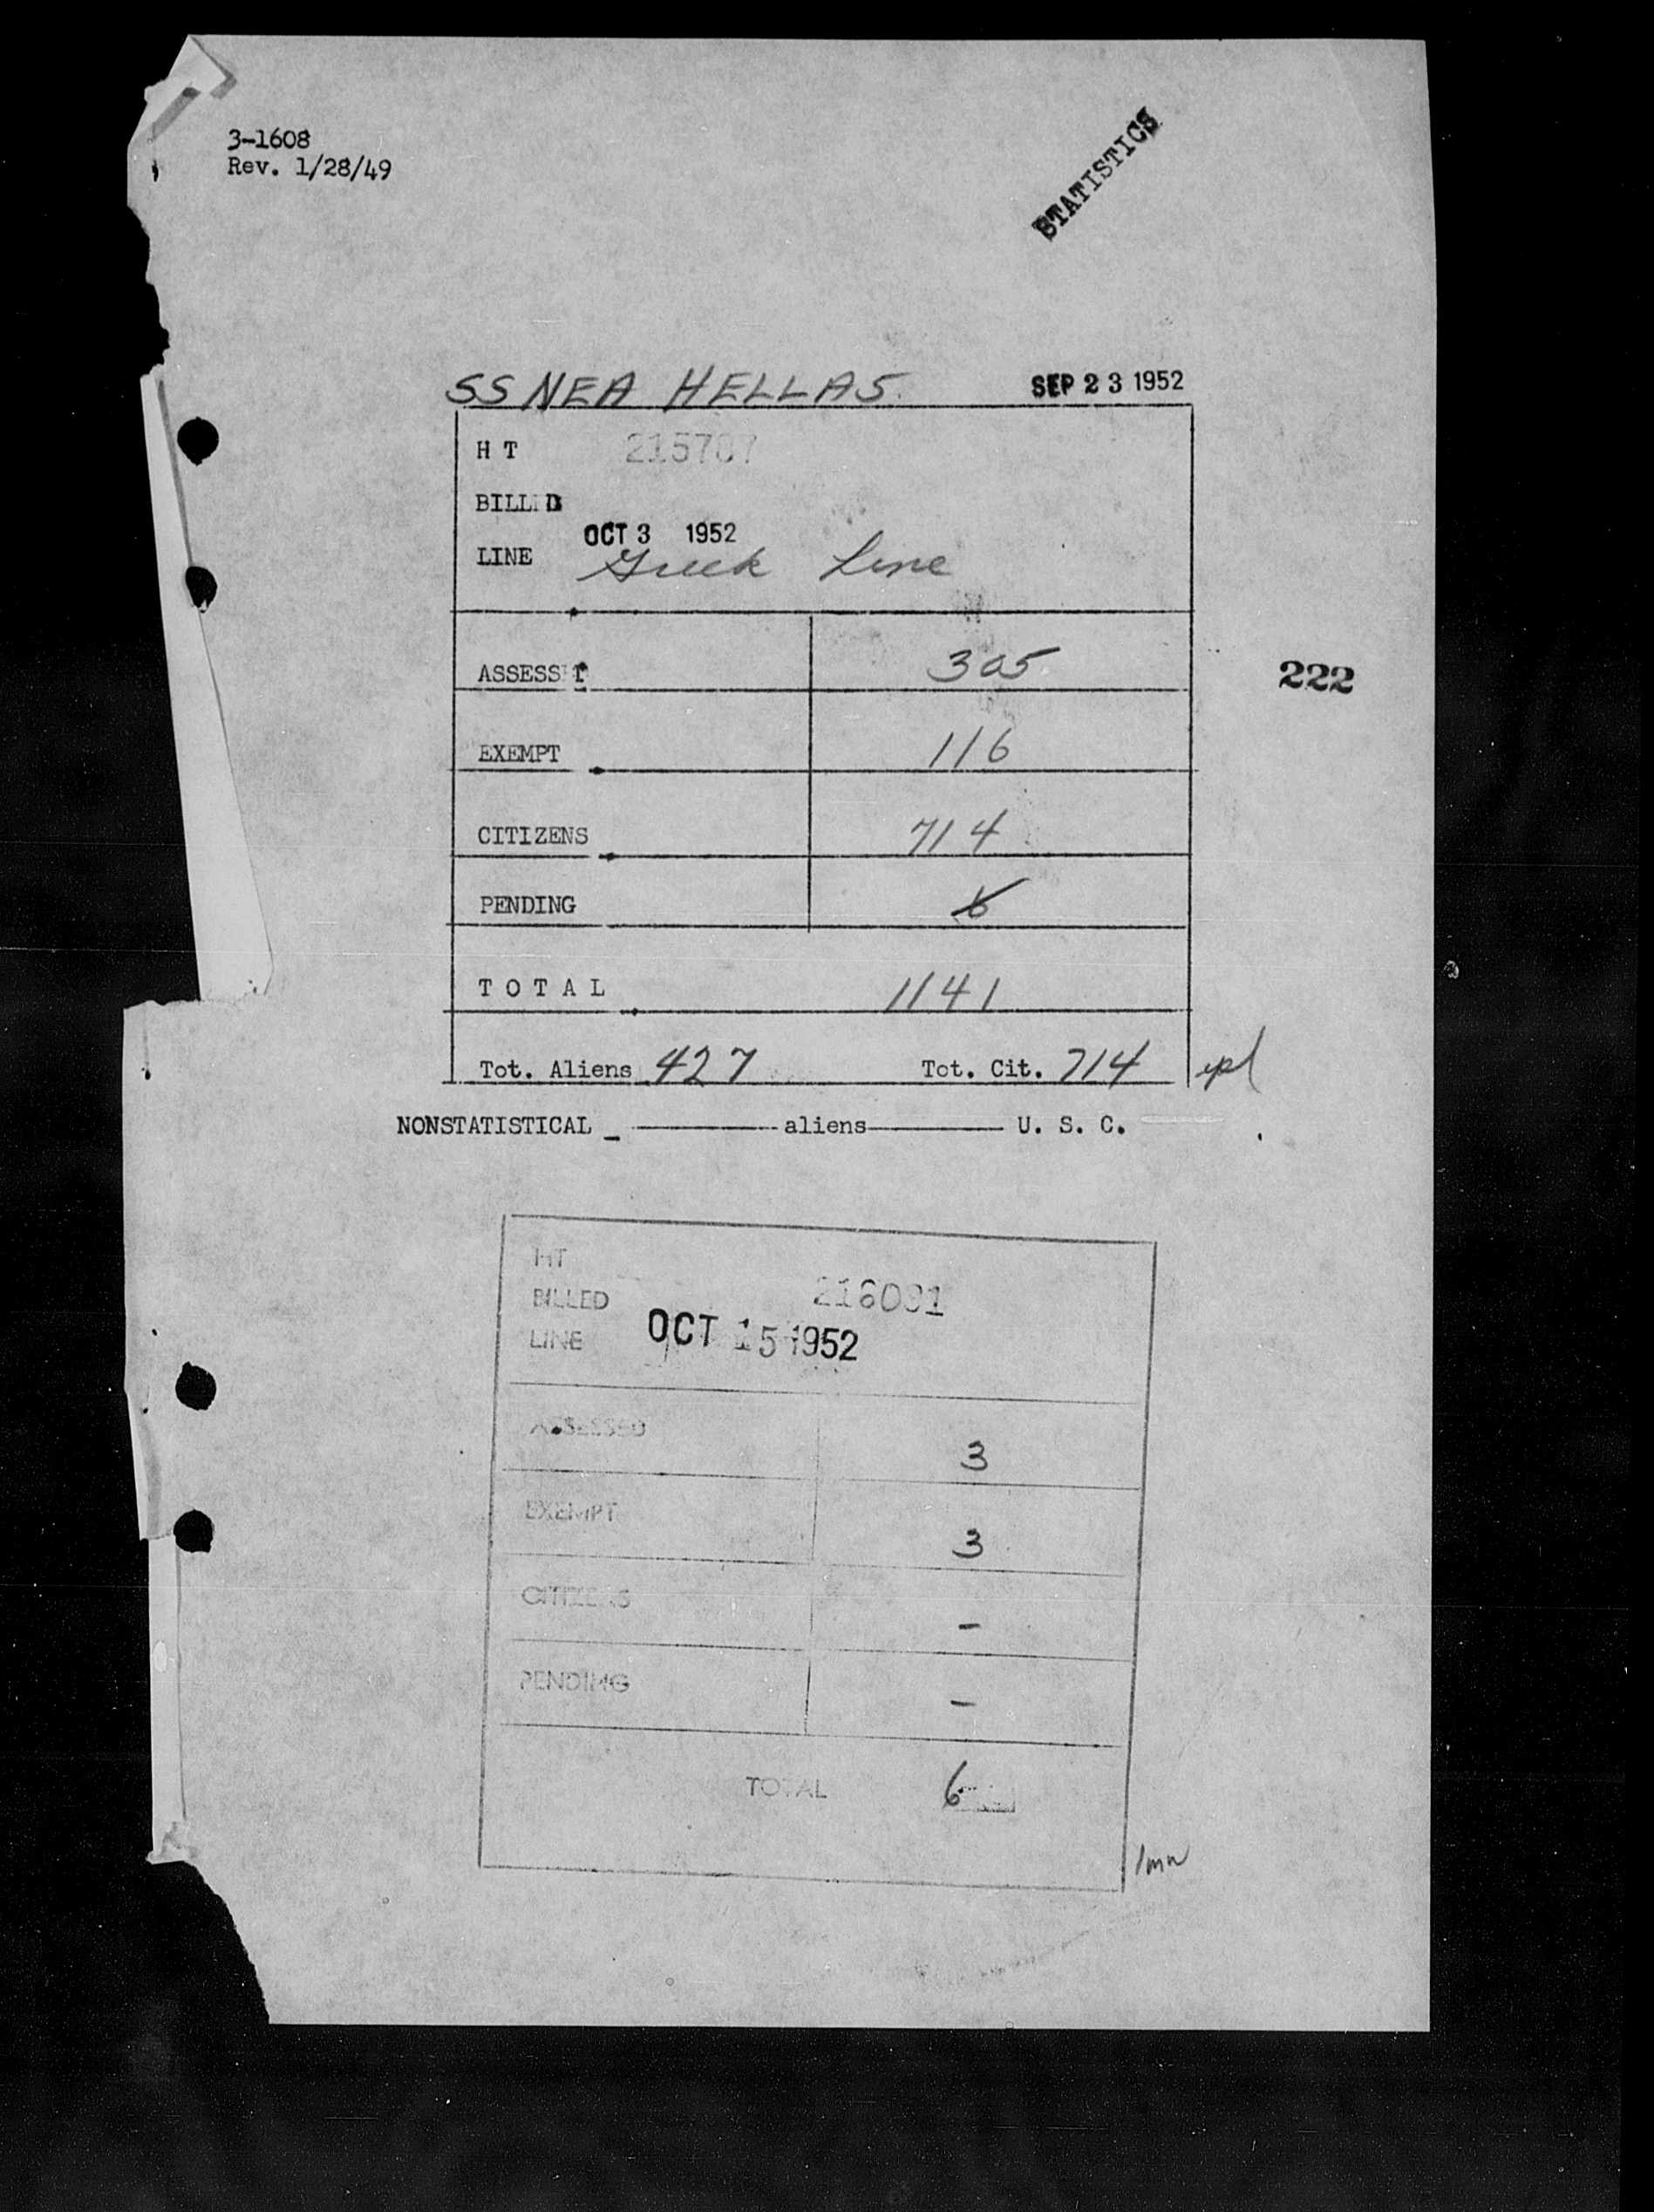 3-1608
Rev. 1/28/49
STATISTICS
SS NEA HELLAS SEP 23 1952
H T 215707
BILL D
OCT 3 1952
LINE Greek Line
ASSESS T 305
222
EXEMPT 116
CITIZENS 714
PENDING 6
T O T A L 1141
Tot. Aliens 427 Tot. Cit. 714
NONSTATISTICAL _ aliens U. S. C.
HT
BILLED 216091
LINE OCT 15 1952
ASSESSED 3
EXEMPT 3
CITIZENS -
PENDING -
TOTAL 6